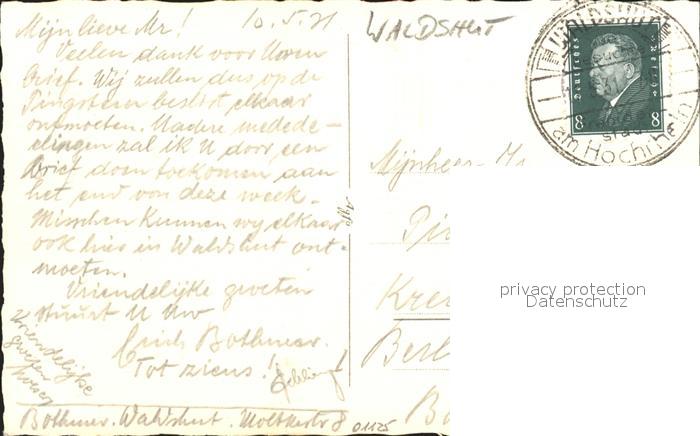 Mijn lieve Mr! 10.5.31
Veelen dank voor Uwen
Brief. Wij zullen dus op de
Pingsteen beslist elkaar
ontmoeten. Nadere mede-
elingen zal ik U door een
Brief doen toekomen aan
het end van deze week.
Misschen kunnen wy elkaar
ook hier in Waldshut ont-
moeten.
Vriendelijke groeten
stuurt U Uw
Erich Bothmer.
Tot ziens!
Vriendelijke
Bothmer. Waldshut. Moltkestr 8
01125
WALDSHUT
WALDSHUT
am Hochrhein
Deutsches Reich
8 8
Mijnheer
Berl
privacy protection
Datenschutz